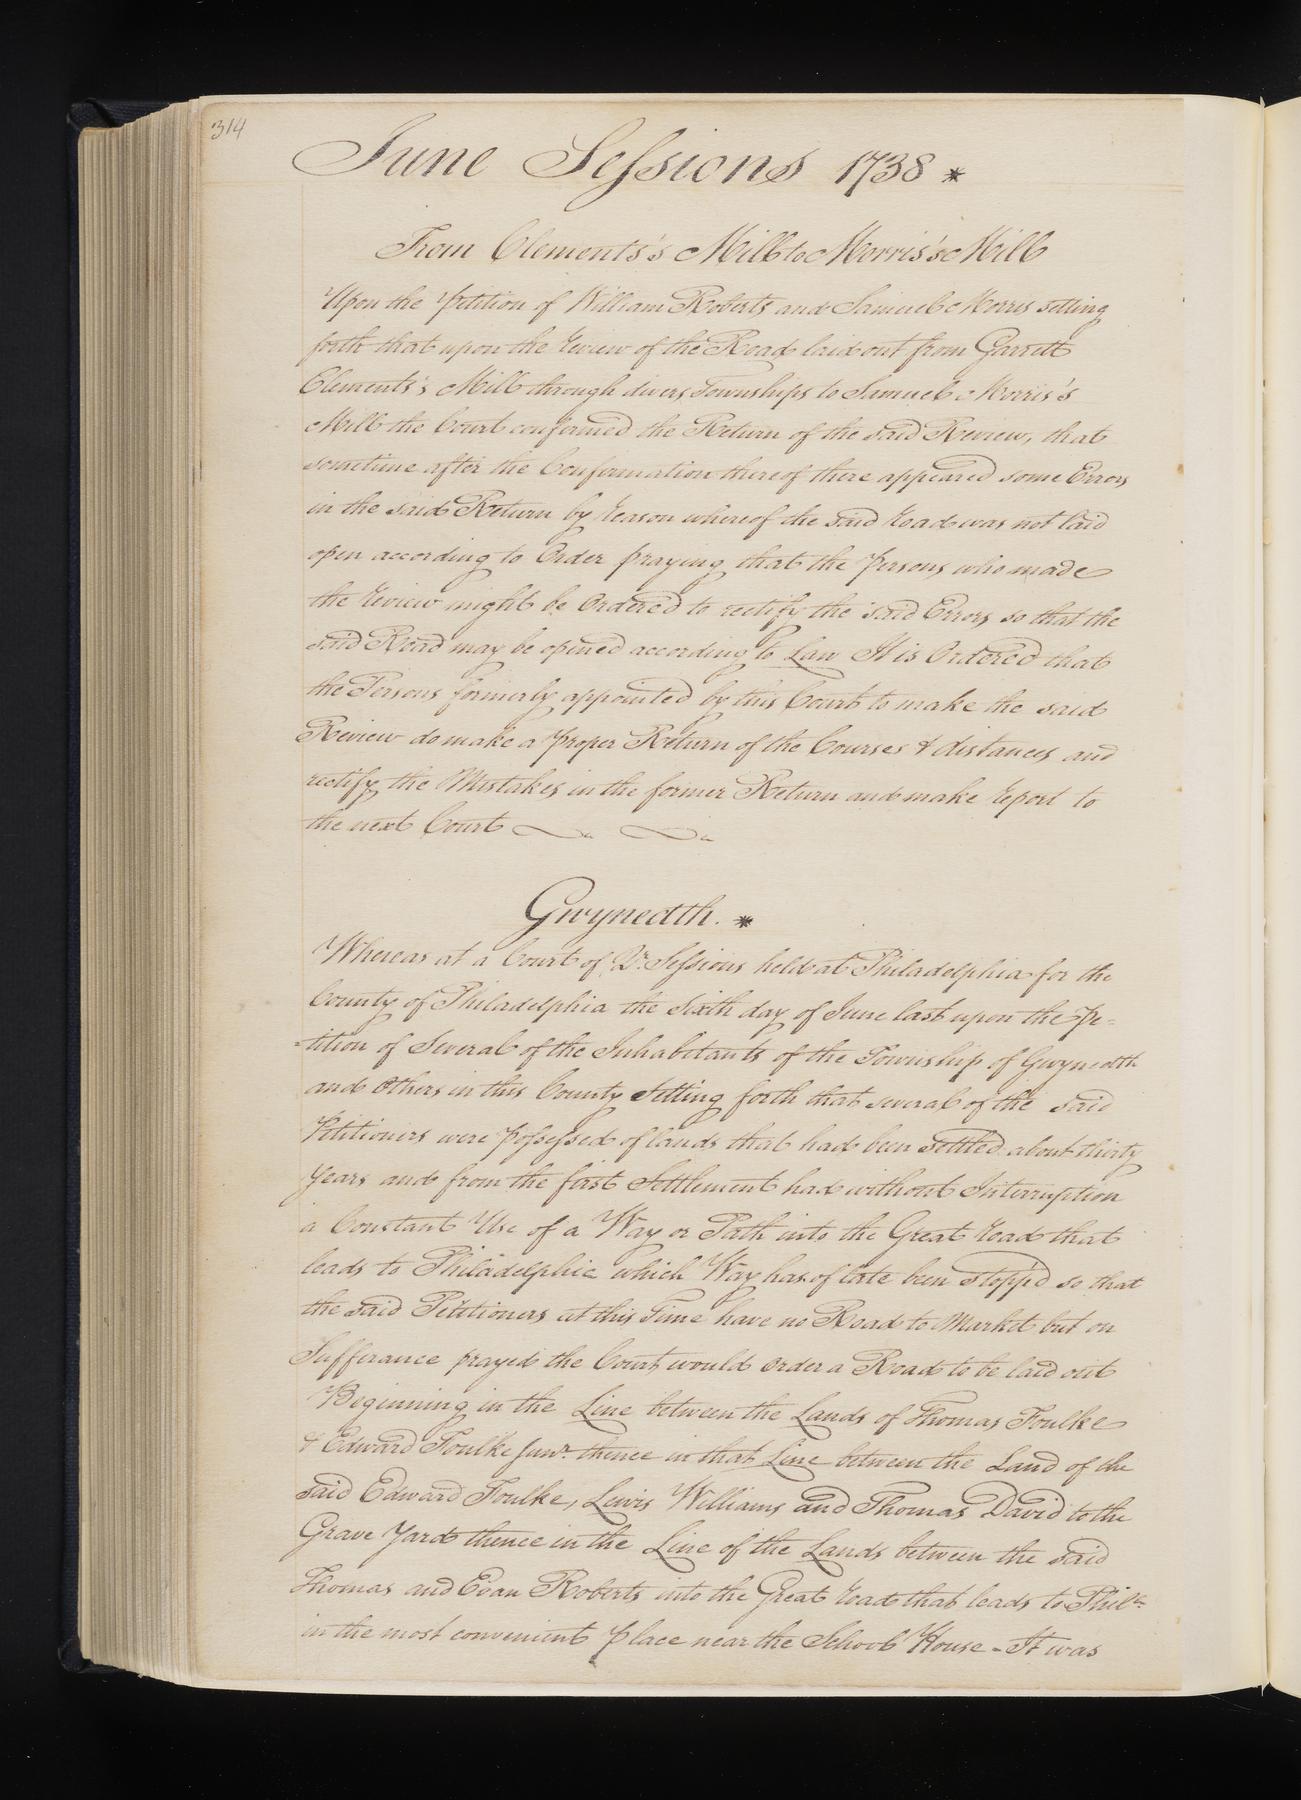 314
June Sessions 1738 *
From Clements's Mill to Morris's Mill
Upon the Petition of William Roberts and Samuel Morris setting
forth that upon the Review of the Road laid out from Garrett
Clements's Mill through divers Townships to Samuel Morris's
Mill the Court confirmed the Return of the said Review, that
sometime after the Confirmation thereof there appeared some Errors
in the said Return by Reason whereof the said Road was not laid
open according to Order praying that the Persons who made
the Review might be Ordered to rectify the said Errors so that the
said Road may be opened according to Law It is Ordered that
the Persons formerly appointed by this Court to make the said
Review do make a proper Return of the Courses & distances and
rectify the Mistakes in the former Return and make Report to
the next Court
Gwynedth. *
Whereas at a Court of Qr. Sessions held at Philadelphia for the
County of Philadelphia the Sixth day of June last upon the Pe=
=tition of Several of the Inhabitants of the Township of Gwynedth
and Others in this County Setting forth that several of the said
Petitioners were possessed of lands that had been settled about thirty
Years and from the first Settlement had without Interruption
a Constant Use of a Way or Path into the Great Road that
leads to Philadelphia which Way has of late been stopp'd so that
the said Petitioners at this Time have no Road to Market but on
Sufferance prayed the Court would order a Road to be laid out
Beginning in the Line between the Lands of Thomas Foulke
& Edward Foulke Junr. thence in that Line between the Land of the
said Edward Foulke, Lewis Williams and Thomas David to the
Grave Yard thence in the Line of the Lands between the said
Thomas and Evan Roberts into the Great Road that leads to Phila.
in the most convenient place near the School House - It was